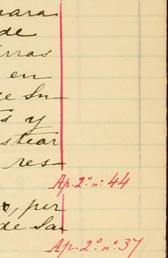 para
de
rras
en
de Su
s y
stear
res-
Ap. 2º nº 44
o, per
de Sa-
Ap. 2º nº 37